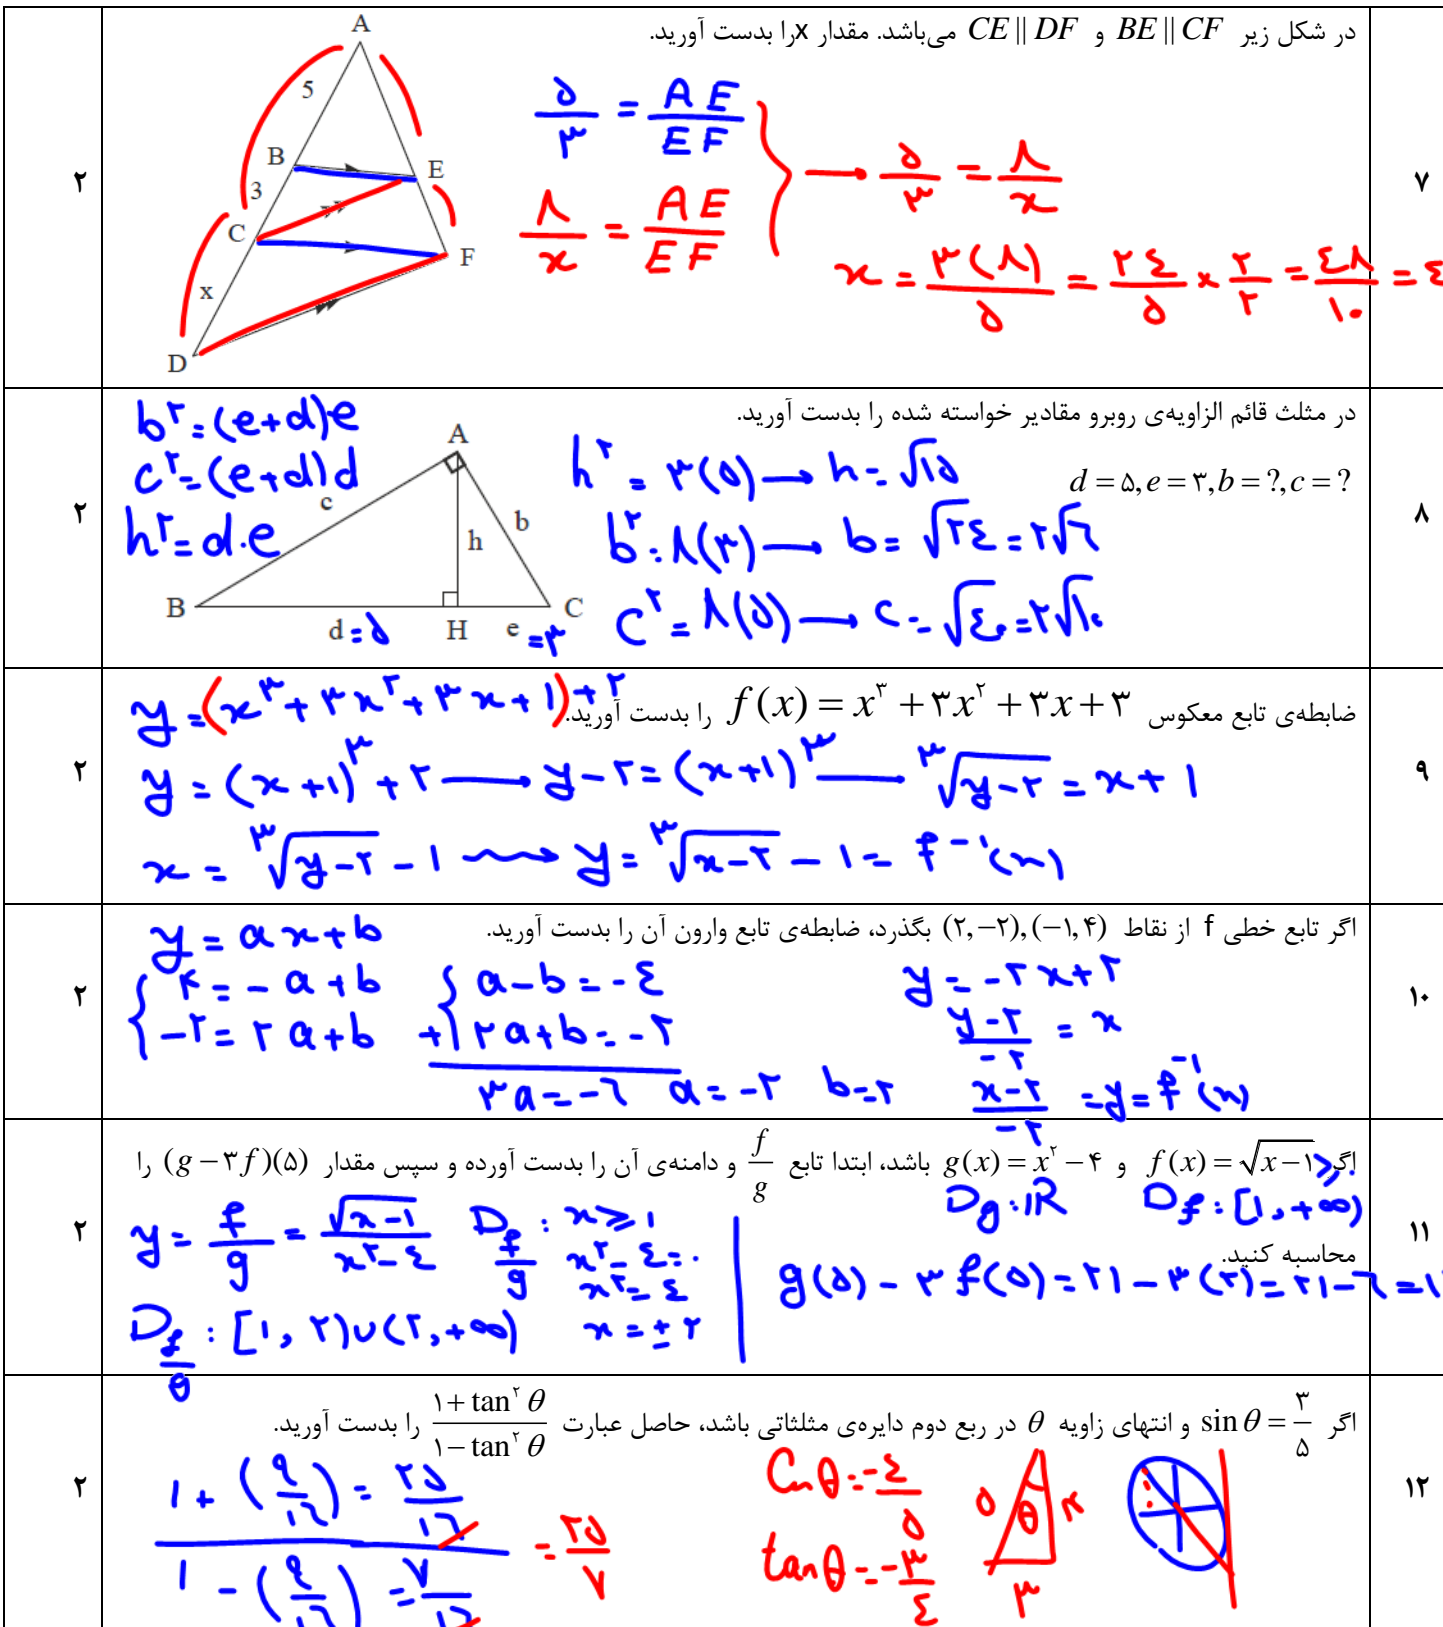 ۷
در شکل زیر BE || CF و CE || DF می‌باشد. مقدار xرا بدست آورید.
۲
A
5
B
E
3
C
F
x
D
۵/۳ = AE/EF
۸/x = AE/EF
→ ۵/۳ = ۸/x
x = ۳(۸)/۵ = ۲۴/۵ × ۲/۲ = ۴۸/۱۰ = ۴
۸
در مثلث قائم الزاویه‌ی روبرو مقادیر خواسته شده را بدست آورید.
d = ۵, e = ۳, b = ?, c = ?
۲
b² = (e+d)e
c² = (e+d)d
h² = d.e
A
c
b
h
B
C
d = ۵
H
e = ۳
h² = ۳(۵) → h = √۱۵
b² = ۸(۳) → b = √۲۴ = ۲√۶
c² = ۸(۵) → c = √۴۰ = ۲√۱۰
۹
ضابطه‌ی تابع معکوس f(x) = x³ + ۳x² + ۳x + ۳ را بدست آورید.
۲
y = (x³ + ۳x² + ۳x + ۱) + ۲
y = (x+۱)³ + ۲ → y-۲ = (x+۱)³ → ³√(y-۲) = x + ۱
x = ³√(y-۲) - ۱ → y = ³√(x-۲) - ۱ = f⁻¹(x)
۱۰
اگر تابع خطی f از نقاط (۲,−۲),(−۱,۴) بگذرد، ضابطه‌ی تابع وارون آن را بدست آورید.
۲
y = ax+b
۴ = -a+b
-۲ = ۲a+b
a-b = -۴
+ ۲a+b = -۲
۳a = -۶ a = -۲ b = ۲
y = -۲x+۲
y-۲/-۲ = x
x-۲/-۲ = y = f⁻¹(x)
۱۱
اگر f(x) = √(x−۱) و g(x) = x² − ۴ باشد، ابتدا تابع f/g و دامنه‌ی آن را بدست آورده و سپس مقدار (g − ۳f)(۵) را
محاسبه کنید.
۲
≥۰
Dg : IR Df : [۱, +∞)
y = f/g = √(x-۱)/x²-۴
D f/g : x ≥ ۱
x²-۴ = ۰
x² = ۴
x = ± ۲
D f/g : [۱, ۲) ∪ (۲, +∞)
g(۵) - ۳ f(۵) = ۲۱ - ۳(۲) = ۲۱-۶ = ۱
۱۲
اگر sin θ = ۳/۵ و انتهای زاویه θ در ربع دوم دایره‌ی مثلثاتی باشد، حاصل عبارت ۱+tan² θ/۱−tan² θ را بدست آورید.
۲
۱ + (۹/۱۶) = ۲۵/۱۶
۱ - (۹/۱۶) = ۷/۱۶
= ۲۵/۷
Cosθ = -۴/۵
tanθ = -۳/۴
۵
θ
۴
۳